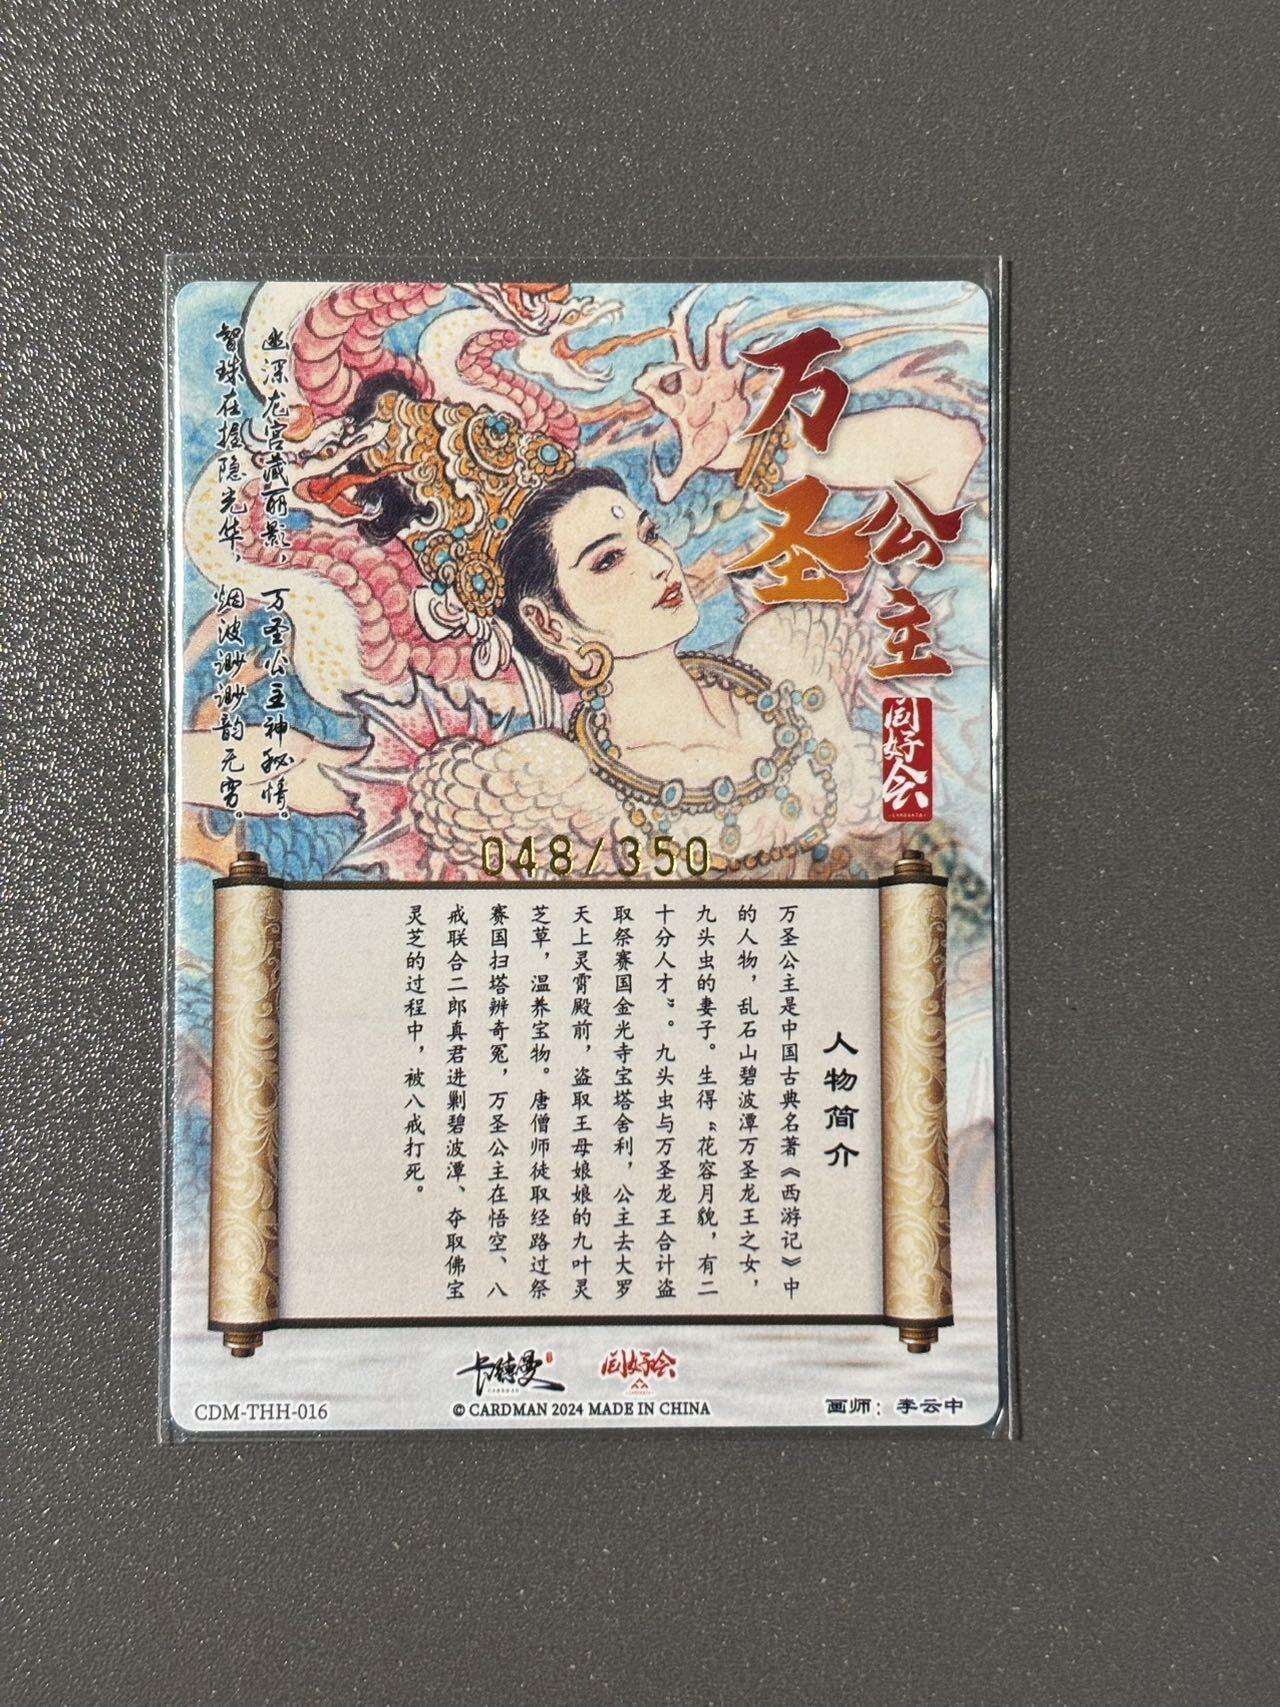 万圣公主
同好会
幽深龙宫藏丽影，万圣公主神秘情。
智珠在握隐光华，烟波渺渺韵无穷。
048/350
人物简介
万圣公主是中国古典名著《西游记》中
的人物，乱石山碧波潭万圣龙王之女，
九头虫的妻子。生得“花容月貌，有二
十分人才”。九头虫与万圣龙王合计盗
取祭赛国金光寺宝塔舍利，公主去大罗
天上灵霄殿前，盗取王母娘娘的九叶灵
芝草，温养宝物。唐僧师徒取经路过祭
赛国扫塔辨奇冤，万圣公主在悟空、八
戒联合二郎真君进剿碧波潭、夺取佛宝
灵芝的过程中，被八戒打死。
卡德曼
同好会
CDM-THH-016
© CARDMAN 2024 MADE IN CHINA
画师：李云中